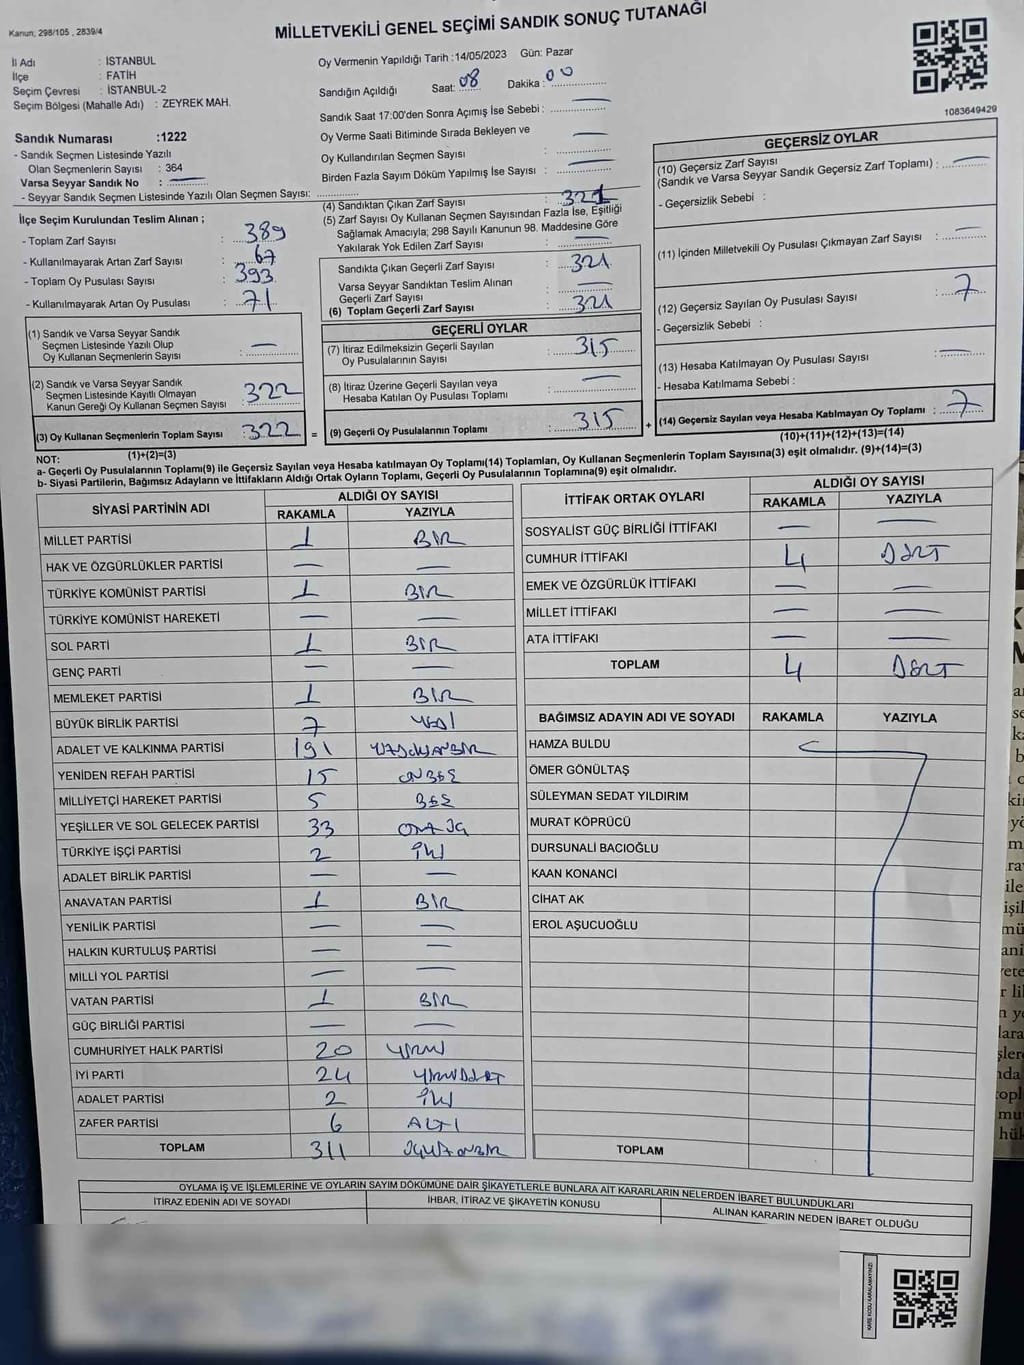 Kanun; 298/105 , 2839/4
MİLLETVEKİLİ GENEL SEÇİMİ SANDIK SONUÇ TUTANAĞI
İl Adı : İSTANBUL
İlçe : FATİH
Seçim Çevresi : İSTANBUL-2
Seçim Bölgesi (Mahalle Adı) : ZEYREK MAH.
Sandık Numarası :1222
- Sandık Seçmen Listesinde Yazılı
Olan Seçmenlerin Sayısı : 364
Varsa Seyyar Sandık No : —
- Seyyar Sandık Seçmen Listesinde Yazılı Olan Seçmen Sayısı:
Oy Vermenin Yapıldığı Tarih :14/05/2023 Gün: Pazar
Sandığın Açıldığı Saat: 08 Dakika : 00
Sandık Saat 17:00'den Sonra Açımış İse Sebebi : —
Oy Verme Saati Bitiminde Sırada Bekleyen ve
Oy Kullandırılan Seçmen Sayısı : —
Birden Fazla Sayım Döküm Yapılmış İse Sayısı : —
1083649429
İlçe Seçim Kurulundan Teslim Alınan ;
- Toplam Zarf Sayısı : 389
- Kullanılmayarak Artan Zarf Sayısı : 67
- Toplam Oy Pusulası Sayısı : 393
- Kullanılmayarak Artan Oy Pusulası : 71
(1) Sandık ve Varsa Seyyar Sandık
Seçmen Listesinde Yazılı Olup
Oy Kullanan Seçmenlerin Sayısı : —
(2) Sandık ve Varsa Seyyar Sandık
Seçmen Listesinde Kayıtlı Olmayan
Kanun Gereği Oy Kullanan Seçmen Sayısı : 322
(3) Oy Kullanan Seçmenlerin Toplam Sayısı : 322
(1)+(2)=(3)
(4) Sandıktan Çıkan Zarf Sayısı : 321
(5) Zarf Sayısı Oy Kullanan Seçmen Sayısından Fazla İse, Eşitliği
Sağlamak Amacıyla; 298 Sayılı Kanunun 98. Maddesine Göre
Yakılarak Yok Edilen Zarf Sayısı : —
Sandıkta Çıkan Geçerli Zarf Sayısı : 321
Varsa Seyyar Sandıktan Teslim Alınan
Geçerli Zarf Sayısı : —
(6) Toplam Geçerli Zarf Sayısı : 321
GEÇERLİ OYLAR
(7) İtiraz Edilmeksizin Geçerli Sayılan
Oy Pusulalarının Sayısı : 315
(8) İtiraz Üzerine Geçerli Sayılan veya
Hesaba Katılan Oy Pusulası Toplamı : —
= (9) Geçerli Oy Pusulalarının Toplamı : 315
GEÇERSİZ OYLAR
(10) Geçersiz Zarf Sayısı
(Sandık ve Varsa Seyyar Sandık Geçersiz Zarf Toplamı) : —
- Geçersizlik Sebebi :
(11) İçinden Milletvekili Oy Pusulası Çıkmayan Zarf Sayısı : —
(12) Geçersiz Sayılan Oy Pusulası Sayısı : 7
- Geçersizlik Sebebi :
(13) Hesaba Katılmayan Oy Pusulası Sayısı : —
- Hesaba Katılmama Sebebi :
+ (14) Geçersiz Sayılan veya Hesaba Katılmayan Oy Toplamı : 7
(10)+(11)+(12)+(13)=(14)
NOT:
a- Geçerli Oy Pusulalarının Toplamı(9) ile Geçersiz Sayılan veya Hesaba katılmayan Oy Toplamı(14) Toplamları, Oy Kullanan Seçmenlerin Toplam Sayısına(3) eşit olmalıdır. (9)+(14)=(3)
b- Siyasi Partilerin, Bağımsız Adayların ve İttifakların Aldığı Ortak Oyların Toplamı, Geçerli Oy Pusulalarının Toplamına(9) eşit olmalıdır.
SİYASİ PARTİNİN ADI ALDIĞI OY SAYISI
RAKAMLA YAZIYLA
MİLLET PARTİSİ 1 BİR
HAK VE ÖZGÜRLÜKLER PARTİSİ — —
TÜRKİYE KOMÜNİST PARTİSİ 1 BİR
TÜRKİYE KOMÜNİST HAREKETİ — —
SOL PARTİ 1 BİR
GENÇ PARTİ — —
MEMLEKET PARTİSİ 1 BİR
BÜYÜK BİRLİK PARTİSİ 7 YEDİ
ADALET VE KALKINMA PARTİSİ 191 YÜZDOKSANBİR
YENİDEN REFAH PARTİSİ 15 ONBEŞ
MİLLİYETÇİ HAREKET PARTİSİ 5 BEŞ
YEŞİLLER VE SOL GELECEK PARTİSİ 33 OTUZ ÜÇ
TÜRKİYE İŞÇİ PARTİSİ 2 İKİ
ADALET BİRLİK PARTİSİ — —
ANAVATAN PARTİSİ 1 BİR
YENİLİK PARTİSİ — —
HALKIN KURTULUŞ PARTİSİ — —
MİLLİ YOL PARTİSİ — —
VATAN PARTİSİ 1 BİR
GÜÇ BİRLİĞİ PARTİSİ — —
CUMHURİYET HALK PARTİSİ 20 YİRMİ
İYİ PARTİ 24 YİRMİDÖRT
ADALET PARTİSİ 2 İKİ
ZAFER PARTİSİ 6 ALTI
TOPLAM 311 ÜÇYÜZONBİR
İTTİFAK ORTAK OYLARI ALDIĞI OY SAYISI
RAKAMLA YAZIYLA
SOSYALİST GÜÇ BİRLİĞİ İTTİFAKI — —
CUMHUR İTTİFAKI 4 DÖRT
EMEK VE ÖZGÜRLÜK İTTİFAKI — —
MİLLET İTTİFAKI — —
ATA İTTİFAKI — —
TOPLAM 4 DÖRT
BAĞIMSIZ ADAYIN ADI VE SOYADI RAKAMLA YAZIYLA
HAMZA BULDU
ÖMER GÖNÜLTAŞ
SÜLEYMAN SEDAT YILDIRIM
MURAT KÖPRÜCÜ
DURSUNALİ BACIOĞLU
KAAN KONANCİ
CİHAT AK
EROL AŞUCUOĞLU
TOPLAM
OYLAMA İŞ VE İŞLEMLERİNE VE OYLARIN SAYIM DÖKÜMÜNE DAİR ŞİKAYETLERLE BUNLARA AİT KARARLARIN NELERDEN İBARET BULUNDUKLARI
İTİRAZ EDENİN ADI VE SOYADI İHBAR, İTİRAZ VE ŞİKAYETİN KONUSU ALINAN KARARIN NEDEN İBARET OLDUĞU
KARE KODU KARALAMAYINIZ!